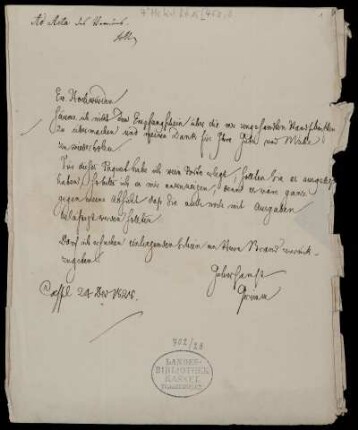 Ad Acta des Vereins.
Ew. Hochwürden
säume ich nicht den Empfangschein über die mir zugesandten Handschriften
zu übermachen und meinen Dank für Ihre Güte und Mühe
zu wiederholen.
Für dieses Paquet habe ich kein Porto erlegt, sollten Sie es ausgelegt
haben, so bitte ich es mir anzuzeigen, denn es wäre ganz
gegen meine Absicht daß Sie auch noch mit Ausgaben
belästigt werden sollten.
Darf ich ersuchen einliegenden Schein an Herrn Brand zurück-
zugeben.
Gehorsamst
Grimm
Cassel 24 Dec 1828.
302/28
LANDES-
BIBLIOTHEK
KASSEL